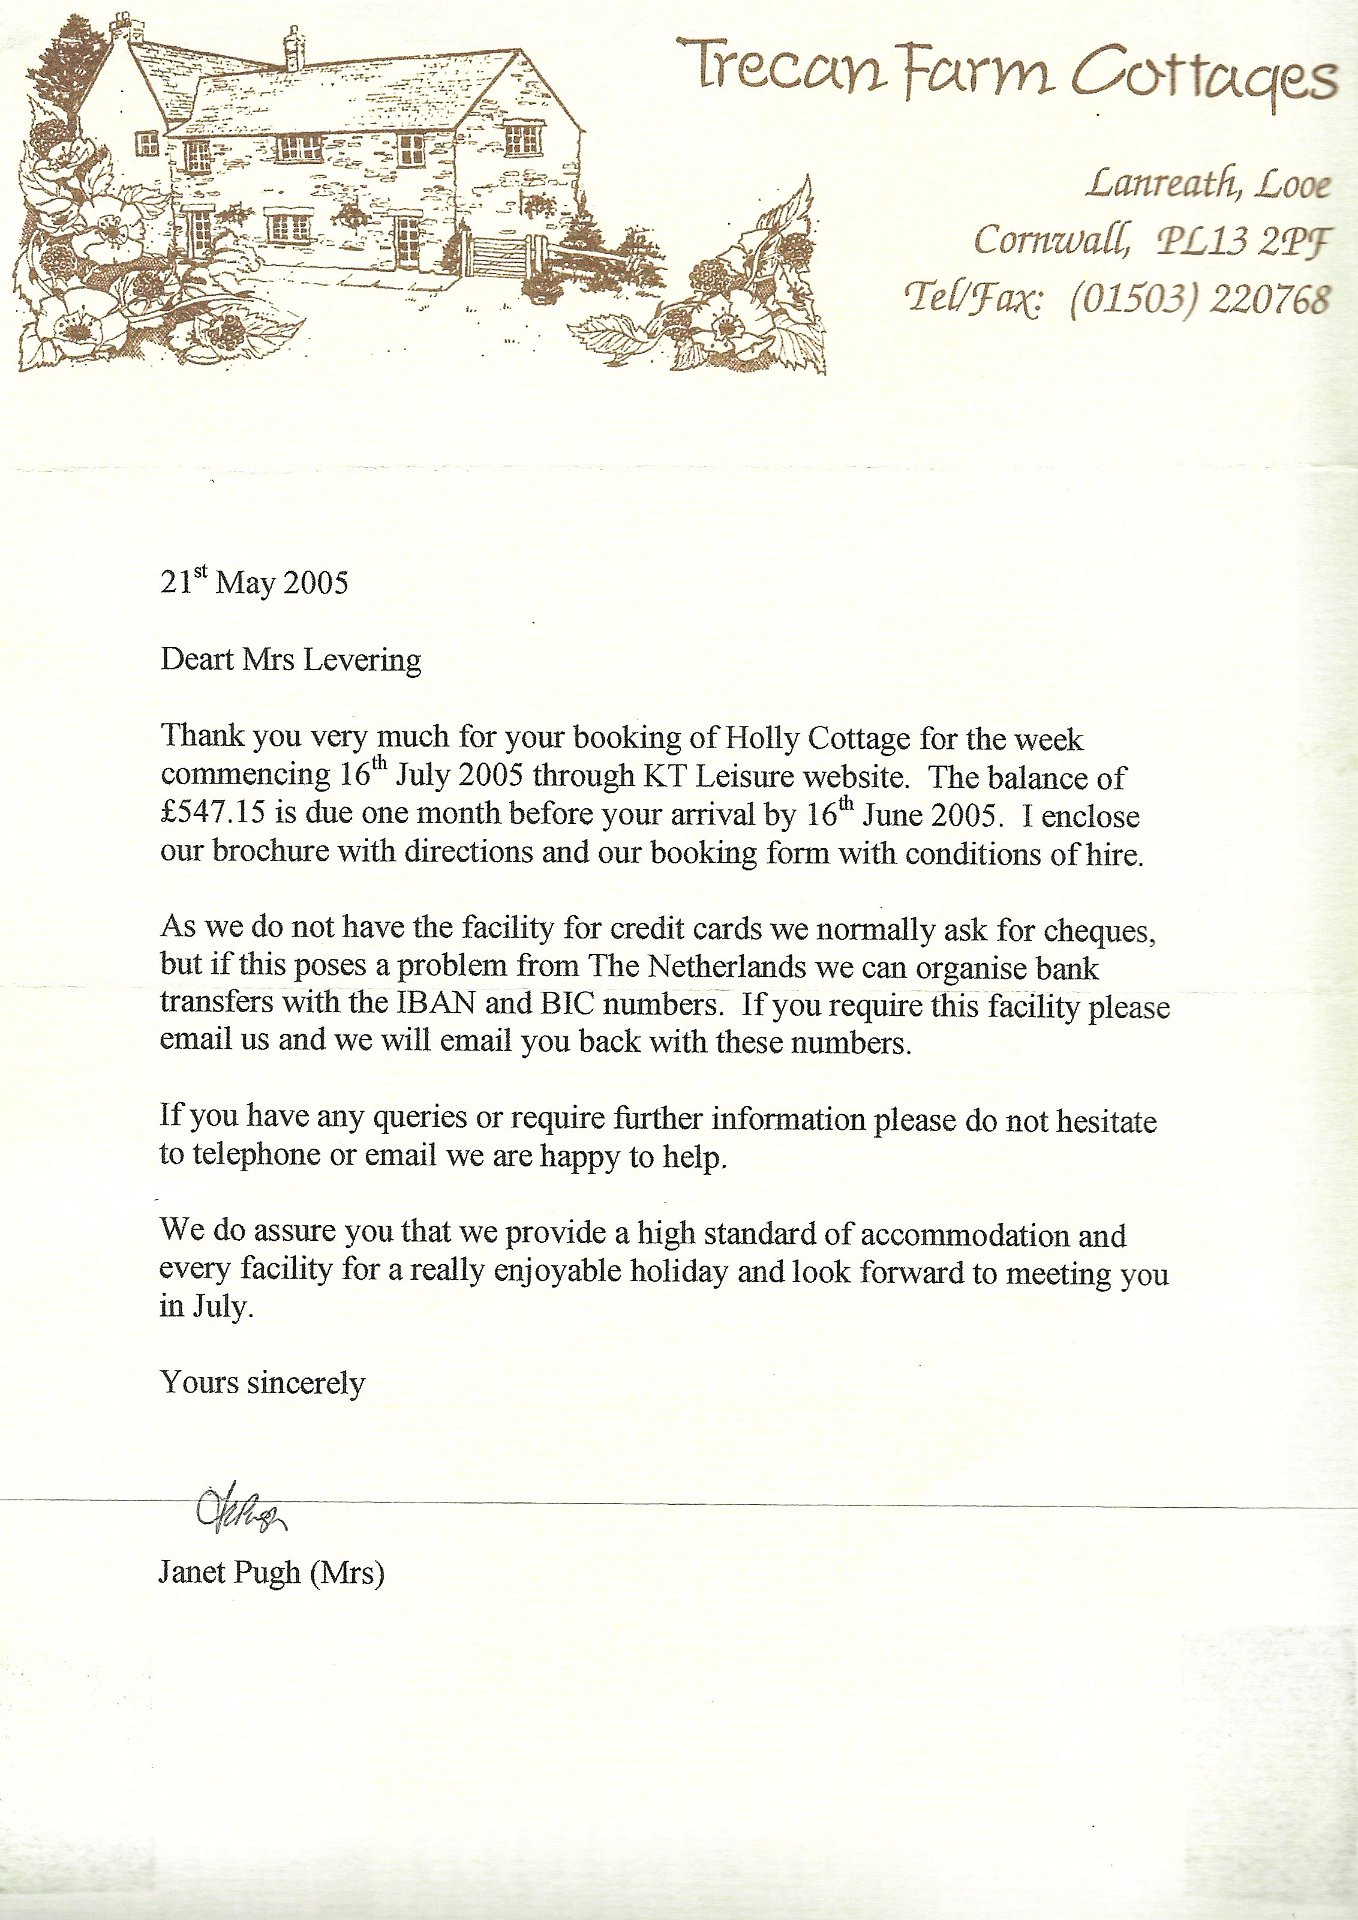 Trecan Farm Cottages
Lanreath, Looe
Cornwall, PL13 2PF
Tel/Fax: (01503) 220768
21st May 2005
Deart Mrs Levering
Thank you very much for your booking of Holly Cottage for the week
commencing 16th July 2005 through KT Leisure website. The balance of
£547.15 is due one month before your arrival by 16th June 2005. I enclose
our brochure with directions and our booking form with conditions of hire.
As we do not have the facility for credit cards we normally ask for cheques,
but if this poses a problem from The Netherlands we can organise bank
transfers with the IBAN and BIC numbers. If you require this facility please
email us and we will email you back with these numbers.
If you have any queries or require further information please do not hesitate
to telephone or email we are happy to help.
We do assure you that we provide a high standard of accommodation and
every facility for a really enjoyable holiday and look forward to meeting you
in July.
Yours sincerely
Janet Pugh (Mrs)